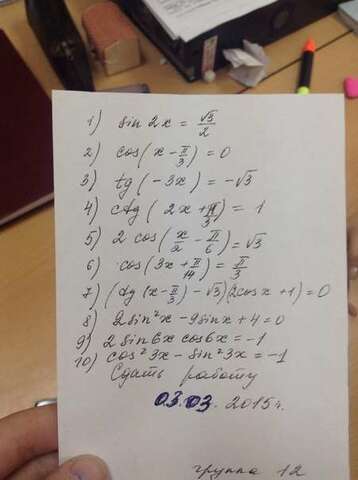 1) sin 2x = √3/2
2) cos(x - π/3) = 0
3) tg(-3x) = -√3
4) ctg(2x + π/3) = 1
5) 2 cos(x/2 - π/6) = √3
6) cos(3x + π/14) = π/3
7) (tg(x - π/3) - √3)(2cosx + 1) = 0
8) 2sin²x - 9sinx + 4 = 0
9) 2 sin6x cos6x = -1
10) cos²3x - sin²3x = -1
Сдать работу
03.03. 2015г.
группа 12